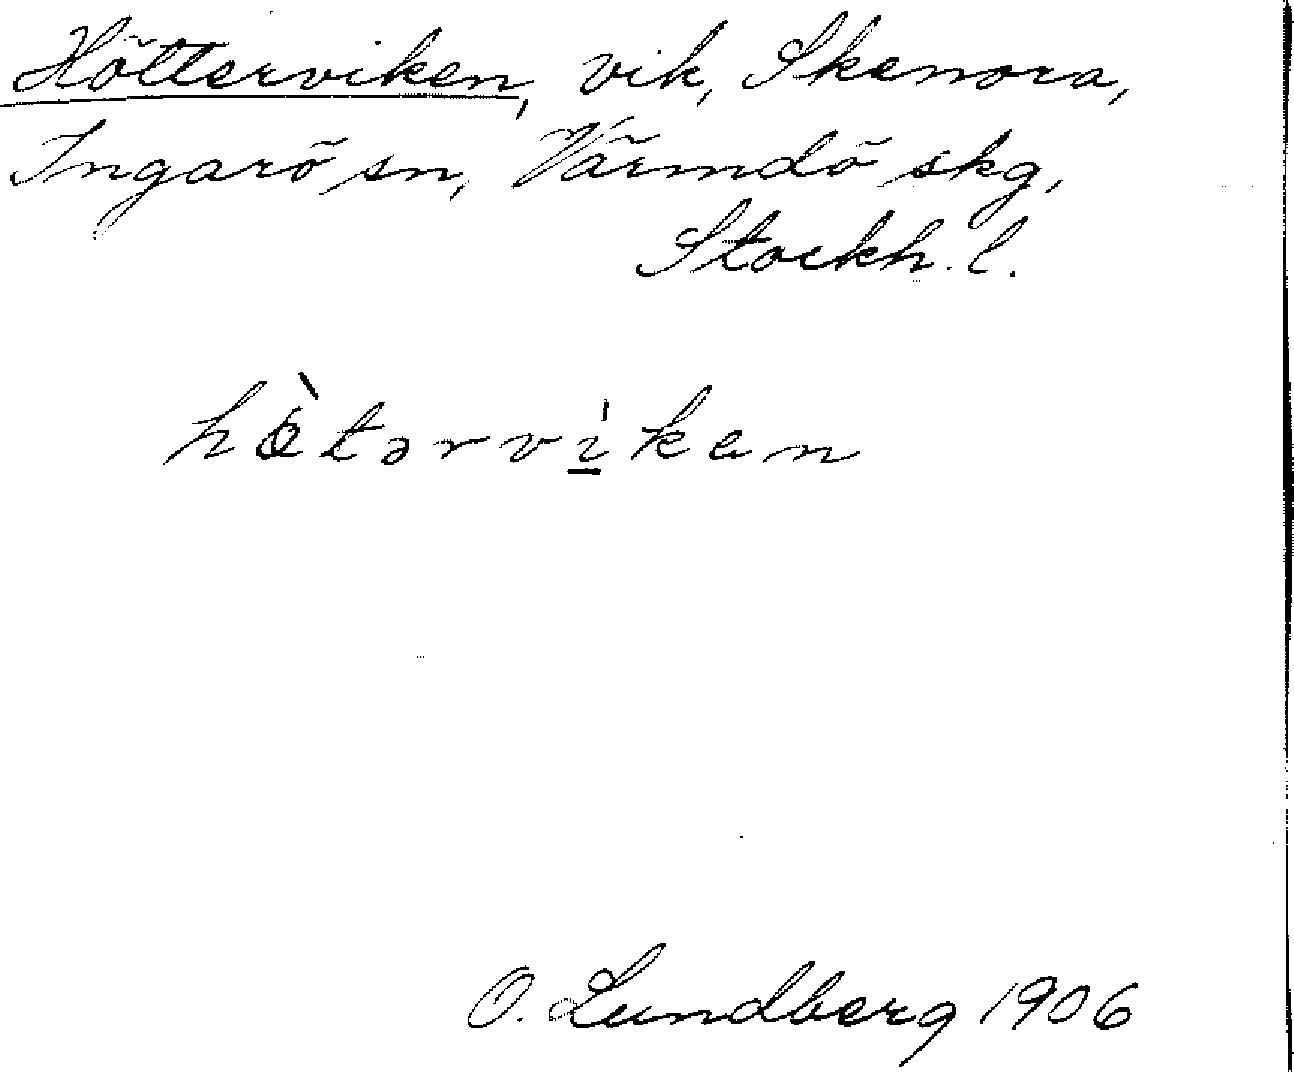 Hötterviken, vik, Skenora,
Ingarö sn, Värmdö skg,
Stockh. l.
hö̀tərvi̲̍ken
O. Lundberg 1906